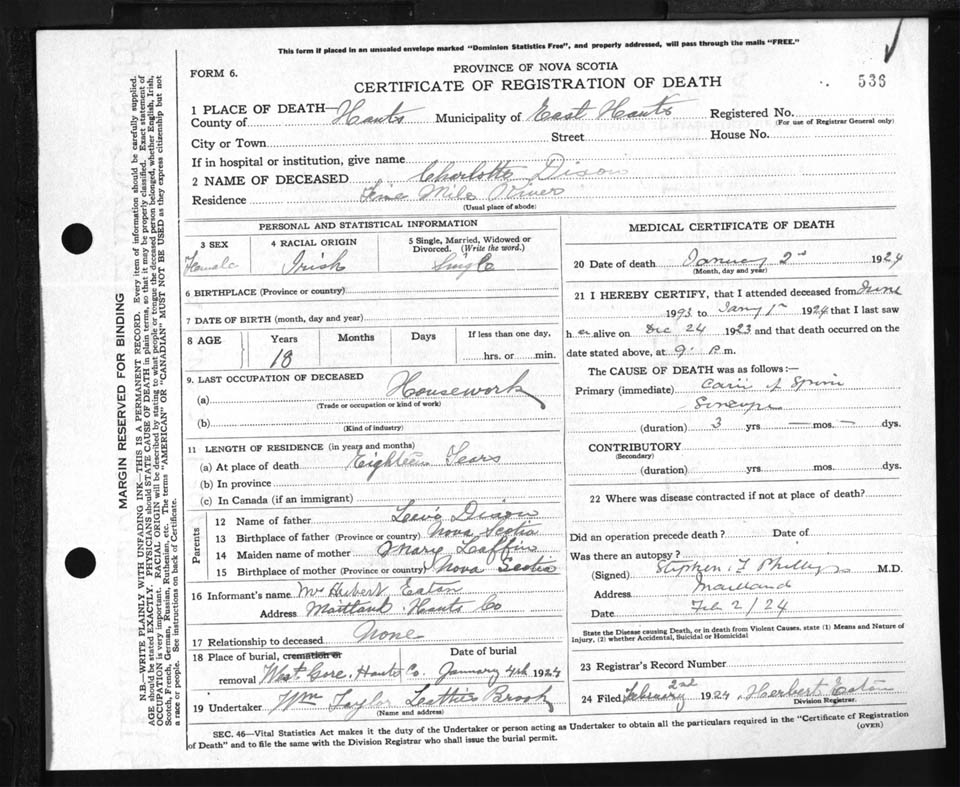 This form if placed in an unsealed envelope marked "Dominion Statistics Free", and properly addressed, will pass through the mails "FREE."
FORM 6.
PROVINCE OF NOVA SCOTIA
CERTIFICATE OF REGISTRATION OF DEATH
536
1 PLACE OF DEATH—
County of Hants Municipality of East Hants Registered No.
(For use of Registrar General only)
City or Town Street House No.
If in hospital or institution, give name
2 NAME OF DECEASED Charlotte Dixon
Residence Mile River
(Usual place of abode)
PERSONAL AND STATISTICAL INFORMATION
3 SEX
Female
4 RACIAL ORIGIN
Irish
5 Single, Married, Widowed or Divorced. (Write the word.)
Single
6 BIRTHPLACE (Province or country)
7 DATE OF BIRTH (month, day and year)
8 AGE Years Months Days If less than one day,
18 hrs. or min.
9. LAST OCCUPATION OF DECEASED
(a) Housework
(Trade or occupation or kind of work)
(b)
(Kind of industry)
11 LENGTH OF RESIDENCE (in years and months)
(a) At place of death Eighteen Years
(b) In province
(c) In Canada (if an immigrant)
Parents
12 Name of father Levi Dixon
13 Birthplace of father (Province or country) Nova Scotia
14 Maiden name of mother Mary Laffin
15 Birthplace of mother (Province or country) Nova Scotia
16 Informant's name Mr Hubert Eaton
Address Maitland Hants Co
17 Relationship to deceased None
18 Place of burial, cremation or removal Date of burial
West Gore, Hants Co. January 4th 1924
19 Undertaker Wm Taylor Brook
(Name and address)
MEDICAL CERTIFICATE OF DEATH
20 Date of death January 2nd 1924
(Month, day and year)
21 I HEREBY CERTIFY, that I attended deceased from June
1923 to Jany 1st 1924 that I last saw
h er alive on Dec 24 1923 and that death occurred on
date stated above, at 9 P. m.
The CAUSE OF DEATH was as follows:—
Primary (immediate) of Spine
(duration) 3 yrs — mos — dys.
CONTRIBUTORY
(Secondary)
(duration) yrs. mos. dys.
22 Where was disease contracted if not at place of death?
Did an operation precede death? Date of
Was there an autopsy?
(Signed) Stephen M.D.
Address Maitland
Date Feb 2/24
State the Disease causing Death, or in death from Violent Causes, state (1) Means and Nature of Injury, (2) whether Accidental, Suicidal or Homicidal
23 Registrar's Record Number
24 Filed February 2nd 1924 Herbert Eaton
Division Registrar.
SEC. 46—Vital Statistics Act makes it the duty of the Undertaker or person acting as Undertaker to obtain all the particulars required in the "Certificate of Registration of Death" and to file the same with the Division Registrar who shall issue the burial permit.
(OVER)
MARGIN RESERVED FOR BINDING
N.B.—WRITE PLAINLY WITH UNFADING INK—THIS IS A PERMANENT RECORD. Every item of information should be carefully supplied.
AGE should be stated EXACTLY. PHYSICIANS should STATE CAUSE OF DEATH in plain terms, so that it may be properly classified. Exact statement of
OCCUPATION is very important. RACIAL ORIGIN will be described by stating to what people or tongue the deceased person belonged, whether English, Irish,
Scotch, French, German, Russian, Ruthenian, etc. The terms "AMERICAN" or "CANADIAN" MUST NOT BE USED as they express citizenship but not
a race or people. See instructions on back of Certificate.